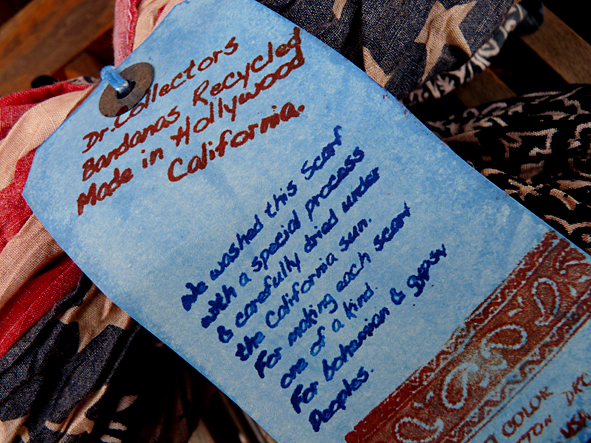 Dr. Collectors
Bandanas Recycled
Made in Hollywood
California.
We washed this scarf
with a special process
& carefully dried under
the California sun.
For making each scarf
one of a kind.
For bohemian & gypsy
peoples.
COLOR
USA